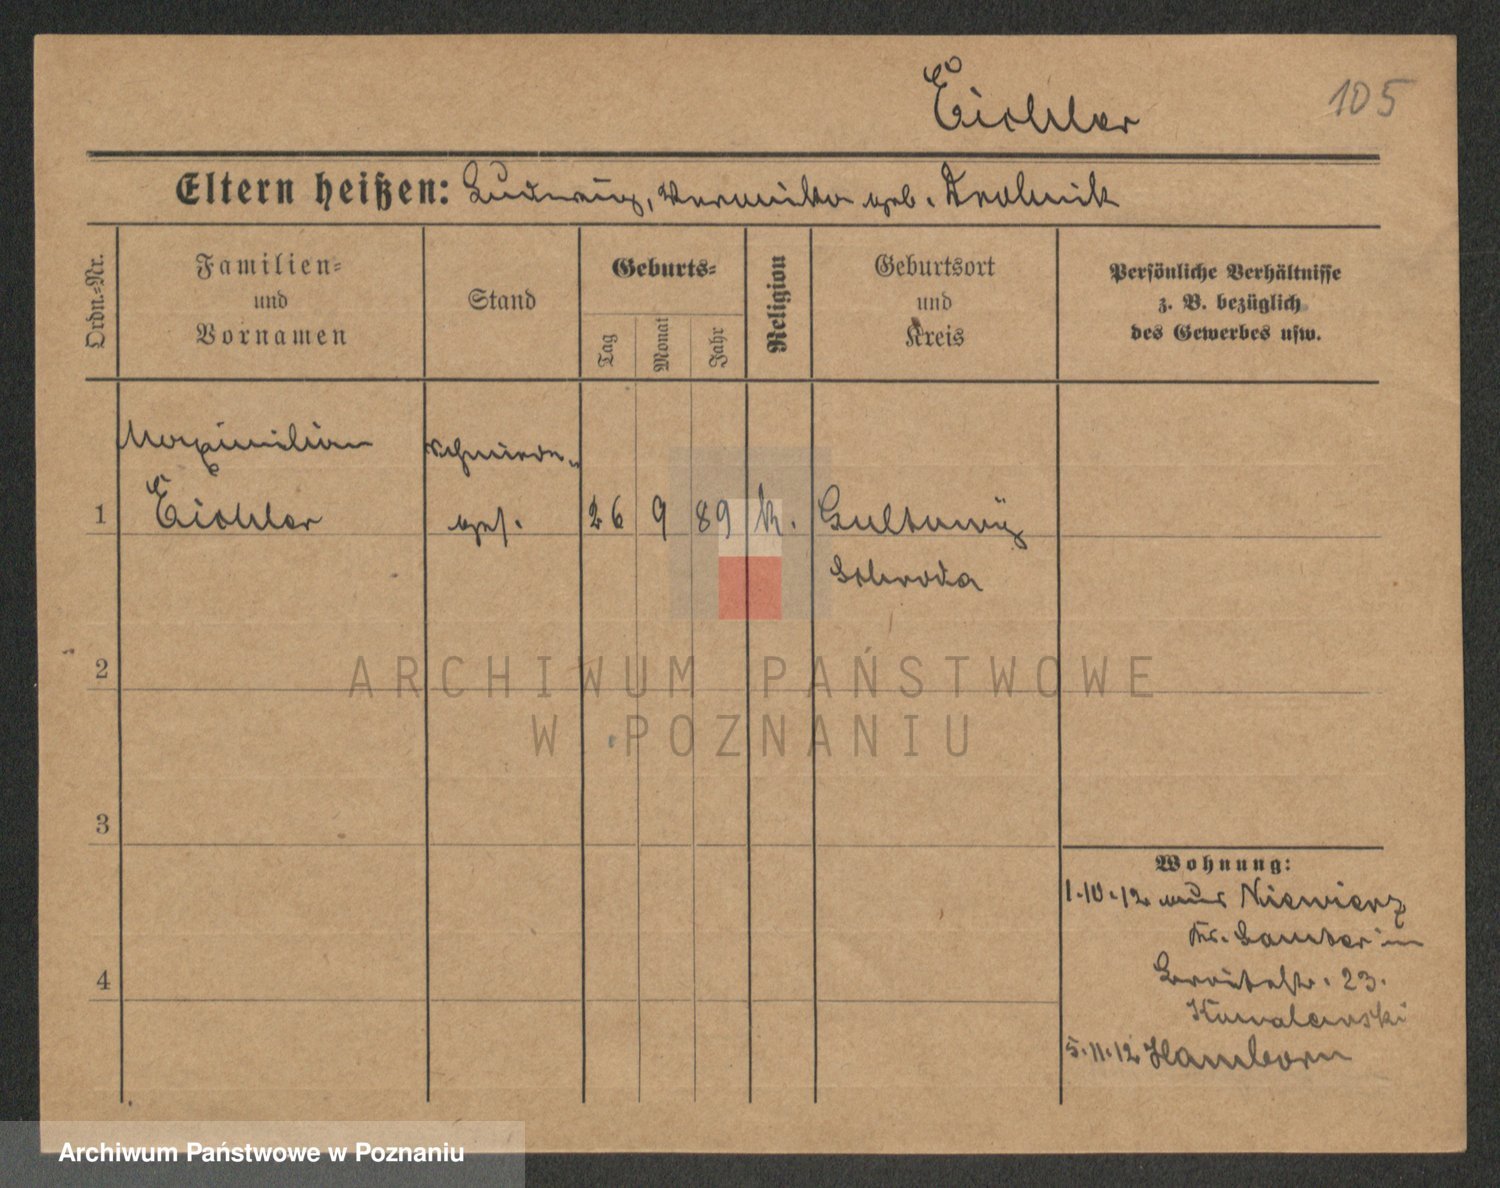 Eichler
105
Eltern heißen: Ludwig, Veronika geb.
Ordn.-Nr.
Familien-
und
Vornamen
Stand
Geburts-
Tag
Monat
Jahr
Religion
Geburtsort
und
Kreis
Persönliche Verhältnisse
z. B. bezüglich
des Gewerbes usw.
Maximilian
Eichler
Schneider-
ges.
1
26
9
89
k.
Gultowy
Schroda
2
ARCHIWUM PAŃSTWOWE
W POZNANIU
3
Wohnung:
1.10.12 aus Niewierz
Kr. Samter in
Breitestr. 23.
Kowalewski
4
5.11.12 Hamborn
Archiwum Państwowe w Poznaniu